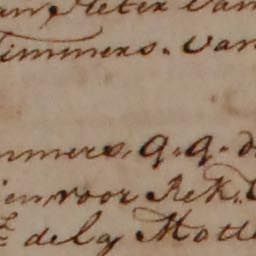 Pieter Van
Timmers. Van
mmers. q. q. d
ien, voor Rek.
dela Motte